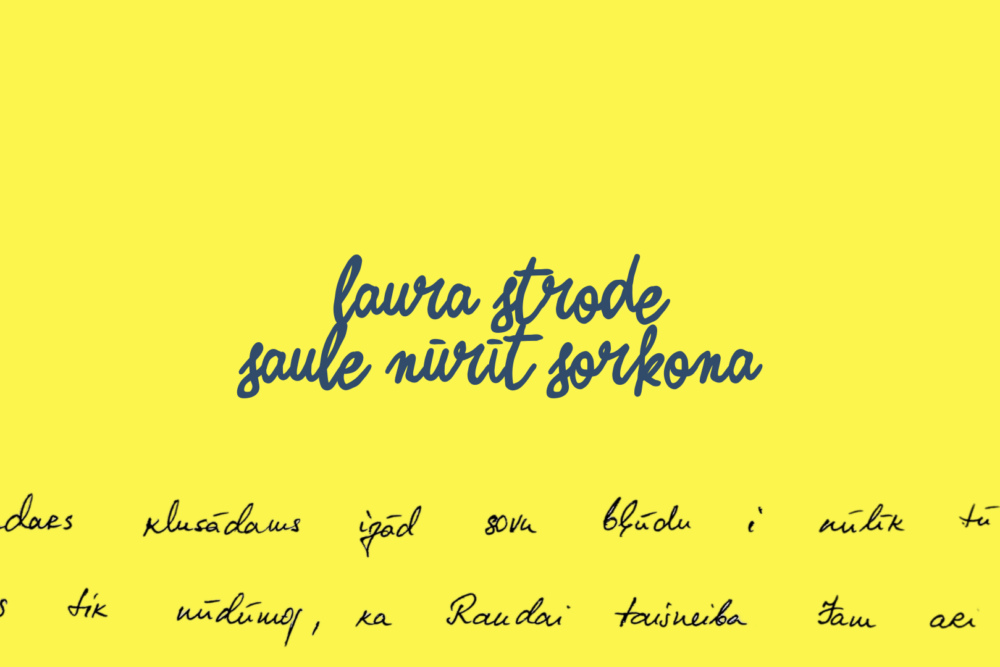 laura strode
saule nūrīt sorkona
klusādams izād sovu bļūdu i nūlīk tū
tik nūdūmoj, ka Raudai taisneiba Jam ari